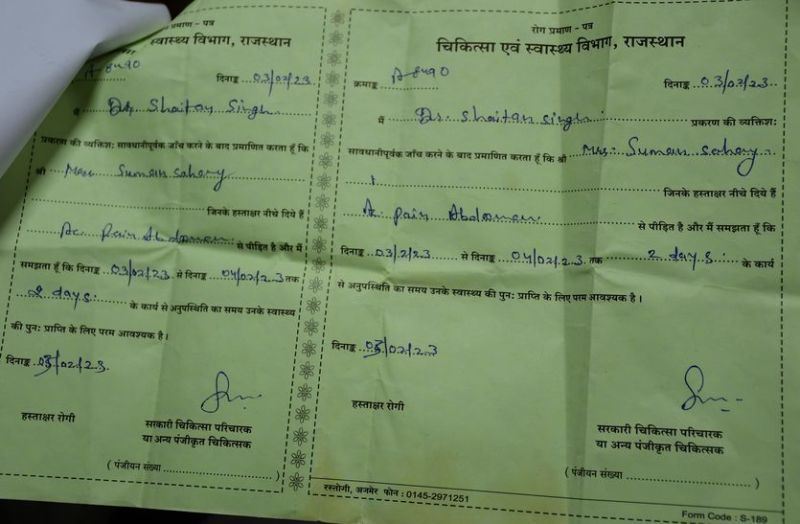 प्रमाण - पत्र
स्वास्थ्य विभाग, राजस्थान
A-8490 दिनाङ्क 03/02/23
Dr. Shaitan Singh
प्रकरण की व्यक्तिशः सावधानीपूर्वक जाँच करने के बाद प्रमाणित करता हूँ कि
श्री Mrs. Suman
जिनके हस्ताक्षर नीचे दिये हैं
Ac. Pain Abdomen से पीड़ित है और मैं
समझता हूँ कि दिनाङ्क 03/02/23 से दिनाङ्क 04/02/23 तक
2 days के कार्य से अनुपस्थिति का समय उनके स्वास्थ्य
की पुनः प्राप्ति के लिए परम आवश्यक है।
दिनाङ्क 03/02/23
हस्ताक्षर रोगी
सरकारी चिकित्सा परिचारक
या अन्य पंजीकृत चिकित्सक
( पंजीयन संख्या )
रोग प्रमाण - पत्र
चिकित्सा एवं स्वास्थ्य विभाग, राजस्थान
क्रमाङ्क A-8490 दिनाङ्क 03/02/23
मैं Dr. Shaitan Singh प्रकरण की व्यक्तिशः
सावधानीपूर्वक जाँच करने के बाद प्रमाणित करता हूँ कि श्री Mrs. Suman
जिनके हस्ताक्षर नीचे दिये हैं
Ac. Pain Abdomen से पीड़ित है और मैं समझता हूँ कि
दिनाङ्क 03/2/23 से दिनाङ्क 04/02/23 तक 2 days के कार्य
से अनुपस्थिति का समय उनके स्वास्थ्य की पुनः प्राप्ति के लिए परम आवश्यक है।
दिनाङ्क 03/02/23
हस्ताक्षर रोगी
सरकारी चिकित्सा परिचारक
या अन्य पंजीकृत चिकित्सक
(पंजीयन संख्या )
रस्तोगी, अजमेर फोन : 0145-2971251
Form Code : S-189